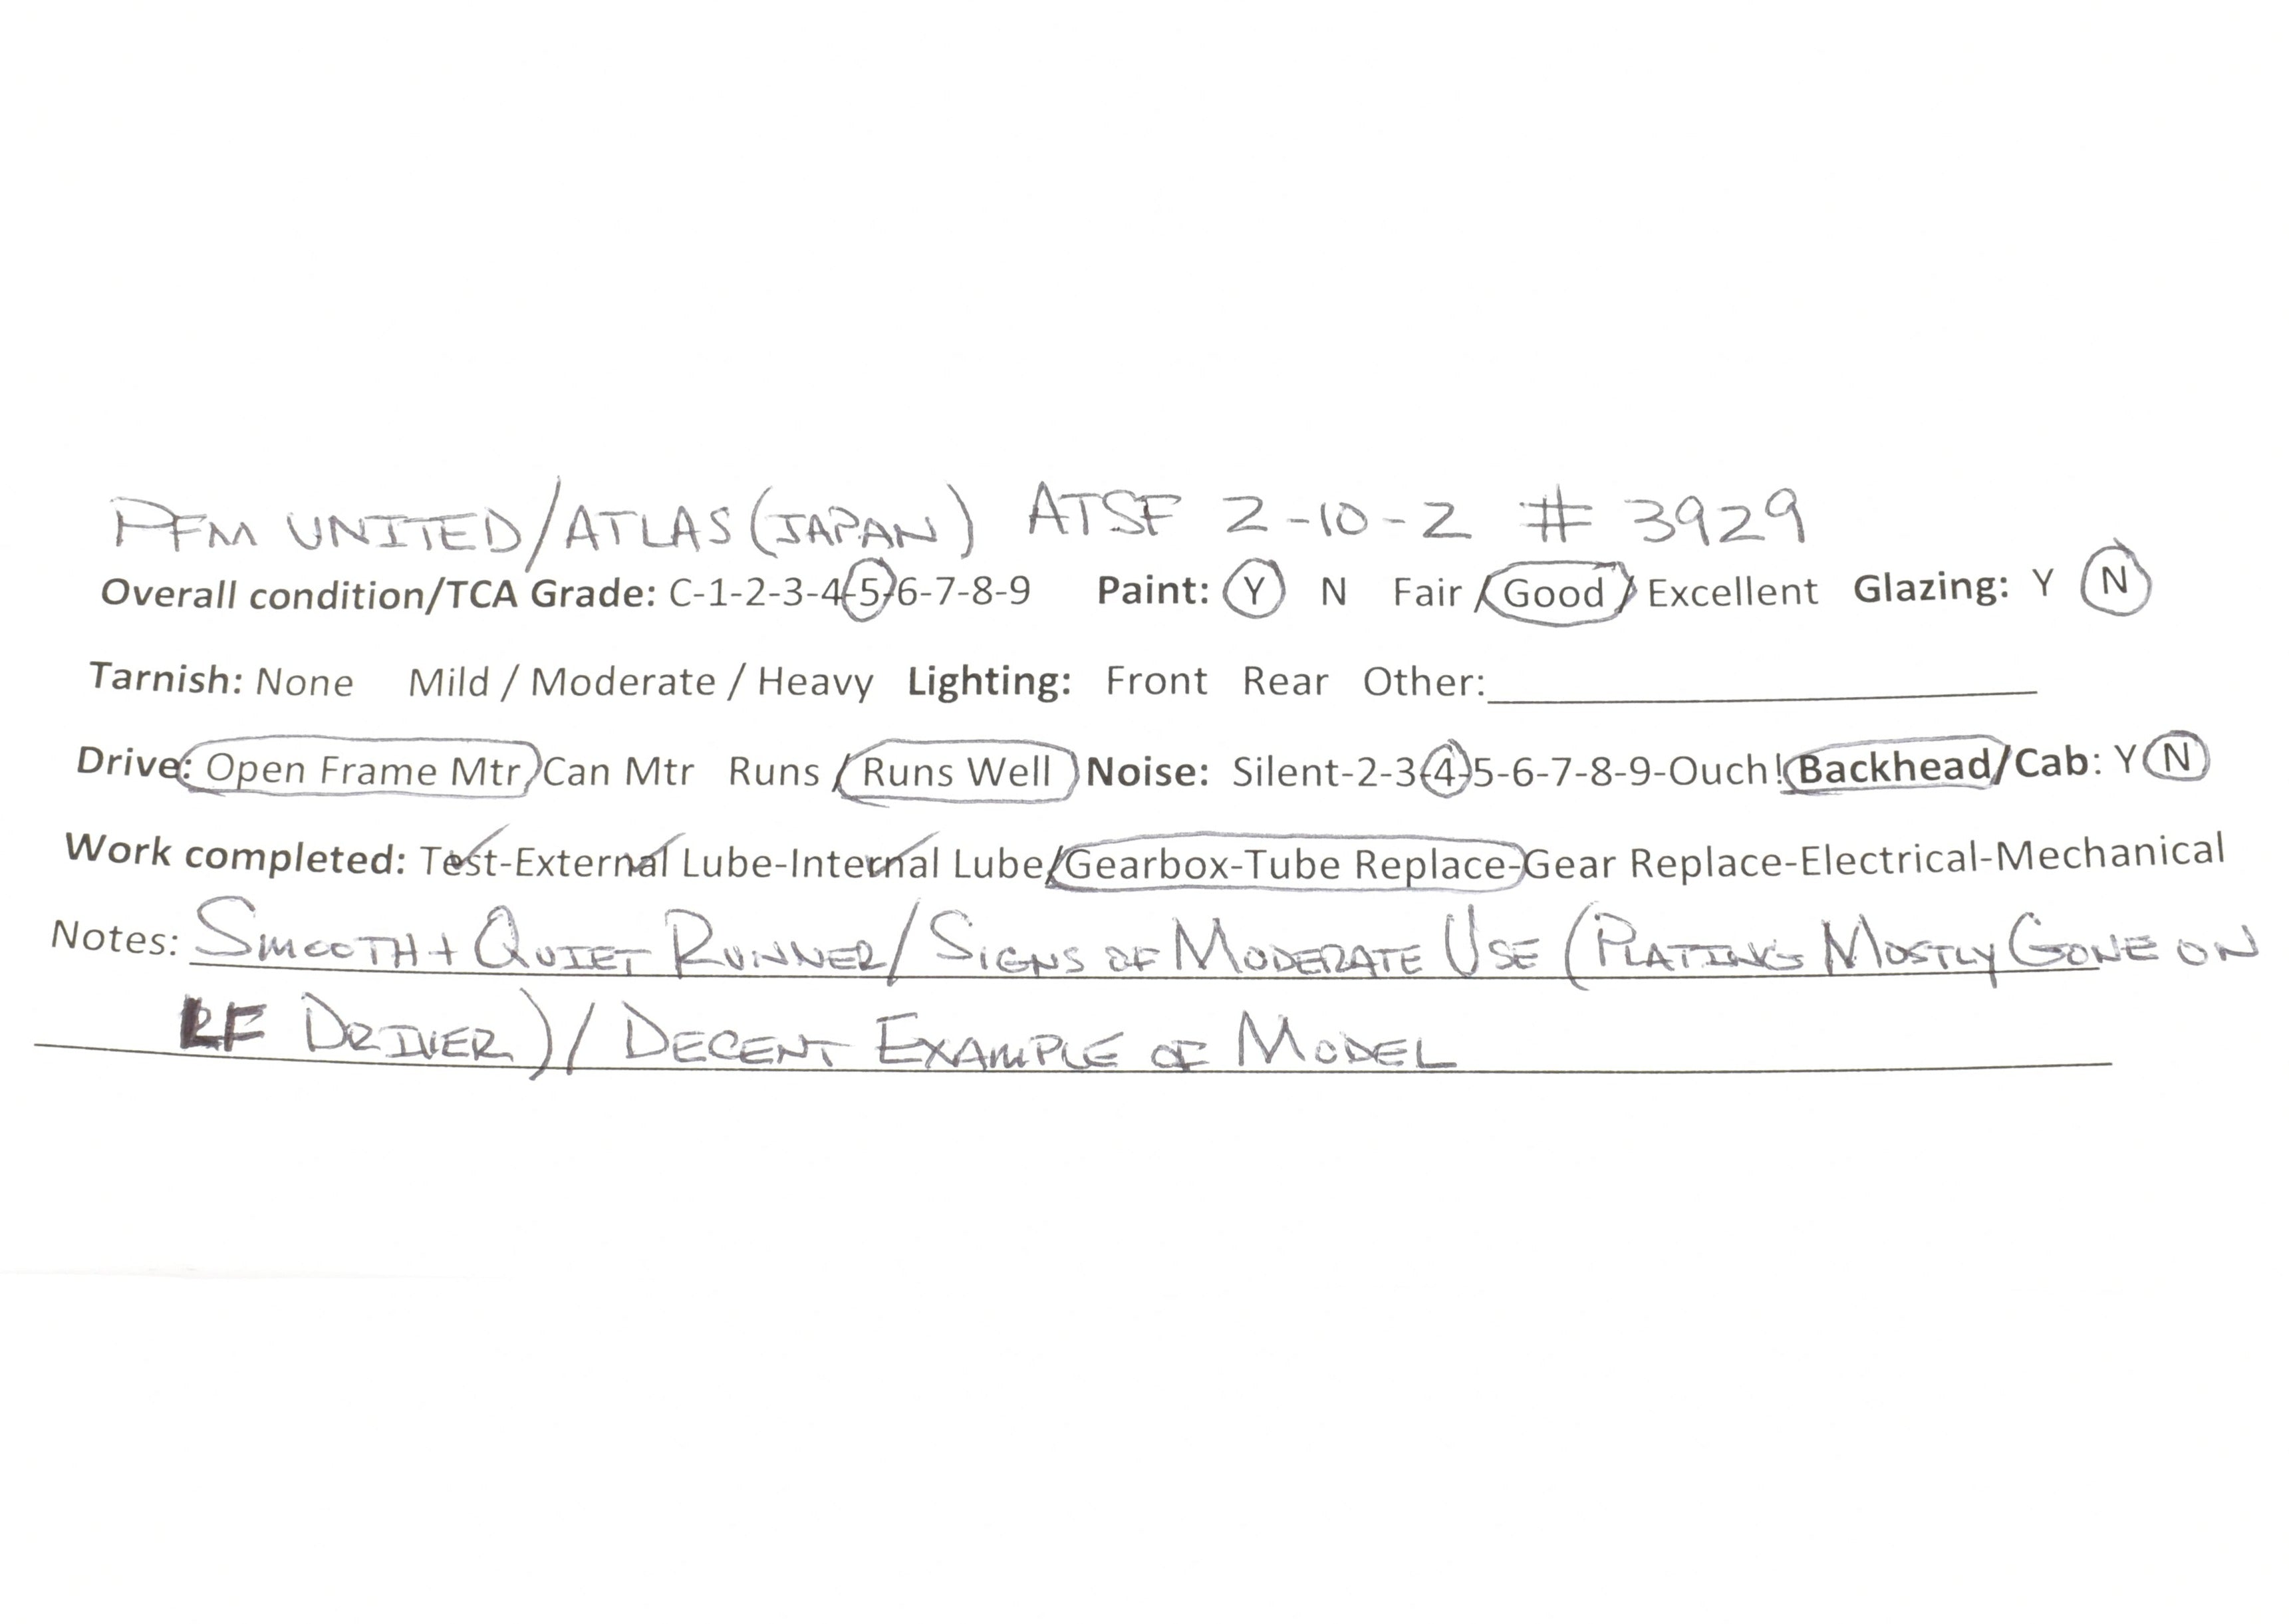 PFM UNITED/ATLAS (JAPAN) ATSF 2-10-2 # 3929
Overall condition/TCA Grade: C-1-2-3-4-5-6-7-8-9 Paint: Y N Fair / Good / Excellent Glazing: Y N
Tarnish: None Mild / Moderate / Heavy Lighting: Front Rear Other:
Drive: Open Frame Mtr Can Mtr Runs / Runs Well Noise: Silent-2-3-4-5-6-7-8-9-Ouch! Backhead/Cab: Y N
Work completed: Test-External Lube-Internal Lube/Gearbox-Tube Replace-Gear Replace-Electrical-Mechanical
Notes: SMOOTH + QUIET RUNNER/ SIGNS OF MODERATE USE (PLATING MOSTLY GONE ON
LF DRIVER) / DECENT EXAMPLE OF MODEL